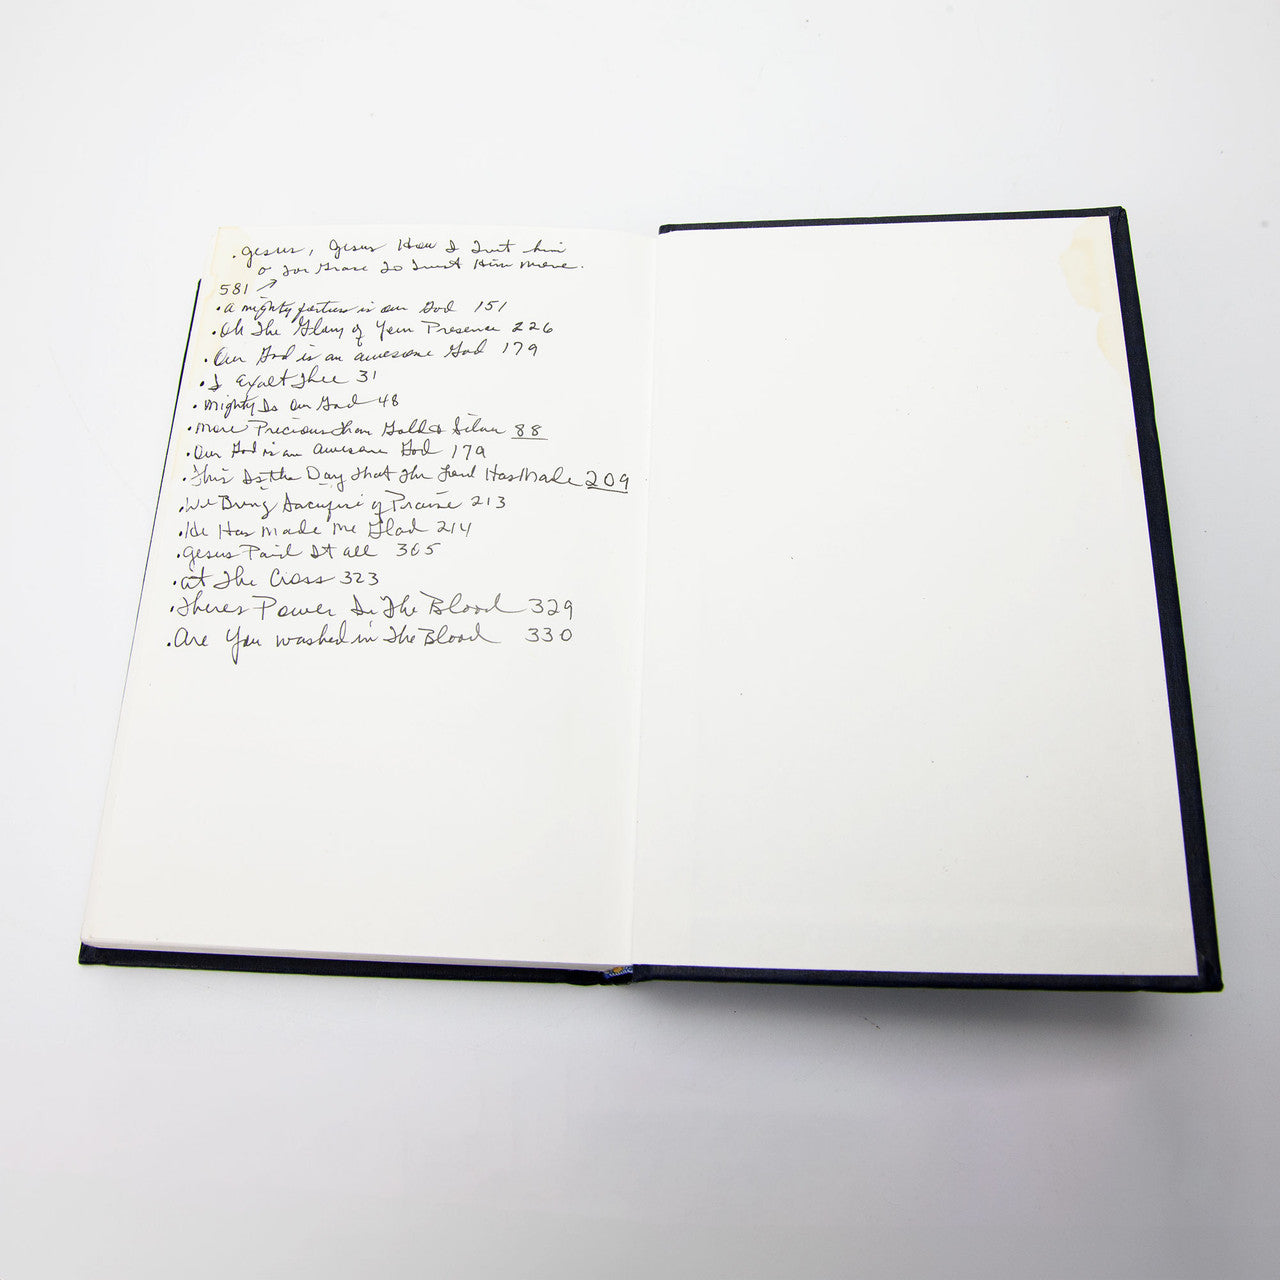 . Jesus, Jesus How I Trust him
o for Grace To Trust Him more.
581 ↗
• A mighty fortress is our God 151
• Oh The Glory of Your Presence 226
• Our God is an awesome God 179
• I Exalt Thee 31
• Mighty Is Our God 48
• More Precious Than Gold & Silver 88
• Our God is an awesome God 179
• This Is the Day That The Lord Has Made 209
• We Bring Sacrifice of Praise 213
• He Has Made Me Glad 214
• Jesus Paid It all 365
• at The Cross 323
• Theres Power In The Blood 329
• Are You washed in The Blood 330